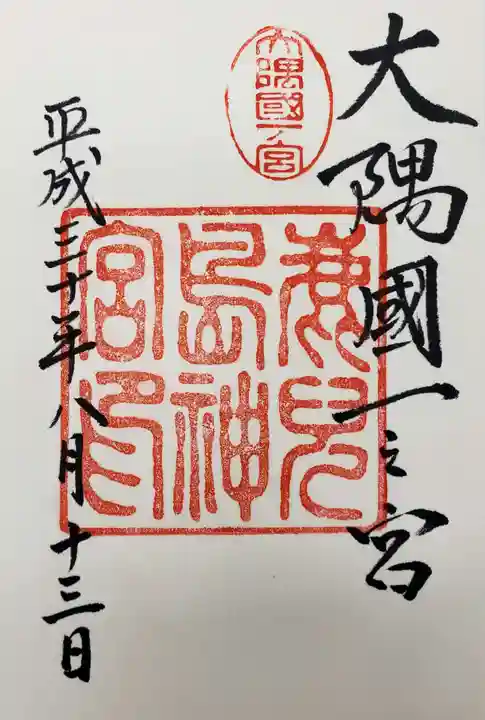 大隅國一之宮
大隅國一宮
鹿兒
島神
宮印
平成三十年八月十三日